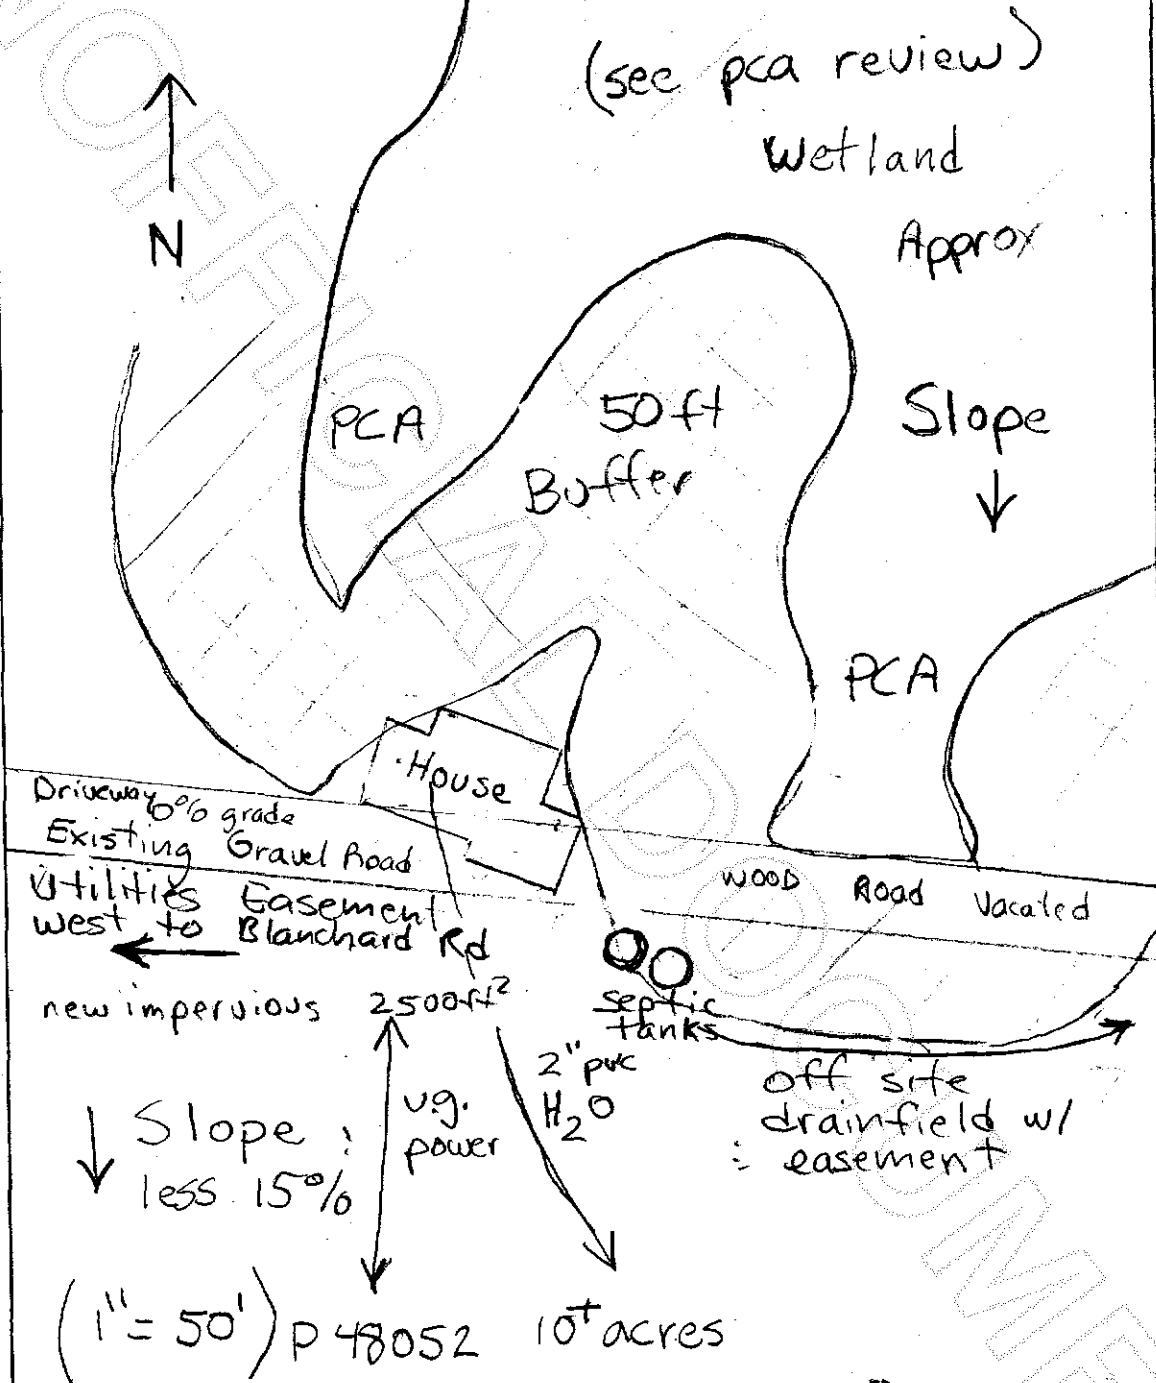 (see pca review)
Wetland
Approx
N
PCA
50ft
Buffer
Slope
PCA
House
Driveway 0% grade
Existing Gravel Road
Utilities Easement
west to Blanchard Rd
WOOD Road Vacated
new impervious 2500ft²
septic
tanks
2" pvc
H₂O
u.g.
power
off site
drainfield w/
easement
Slope
less 15%
(1"= 50') P 48052 10+ acres
UNOFFICIAL DOCUMENT